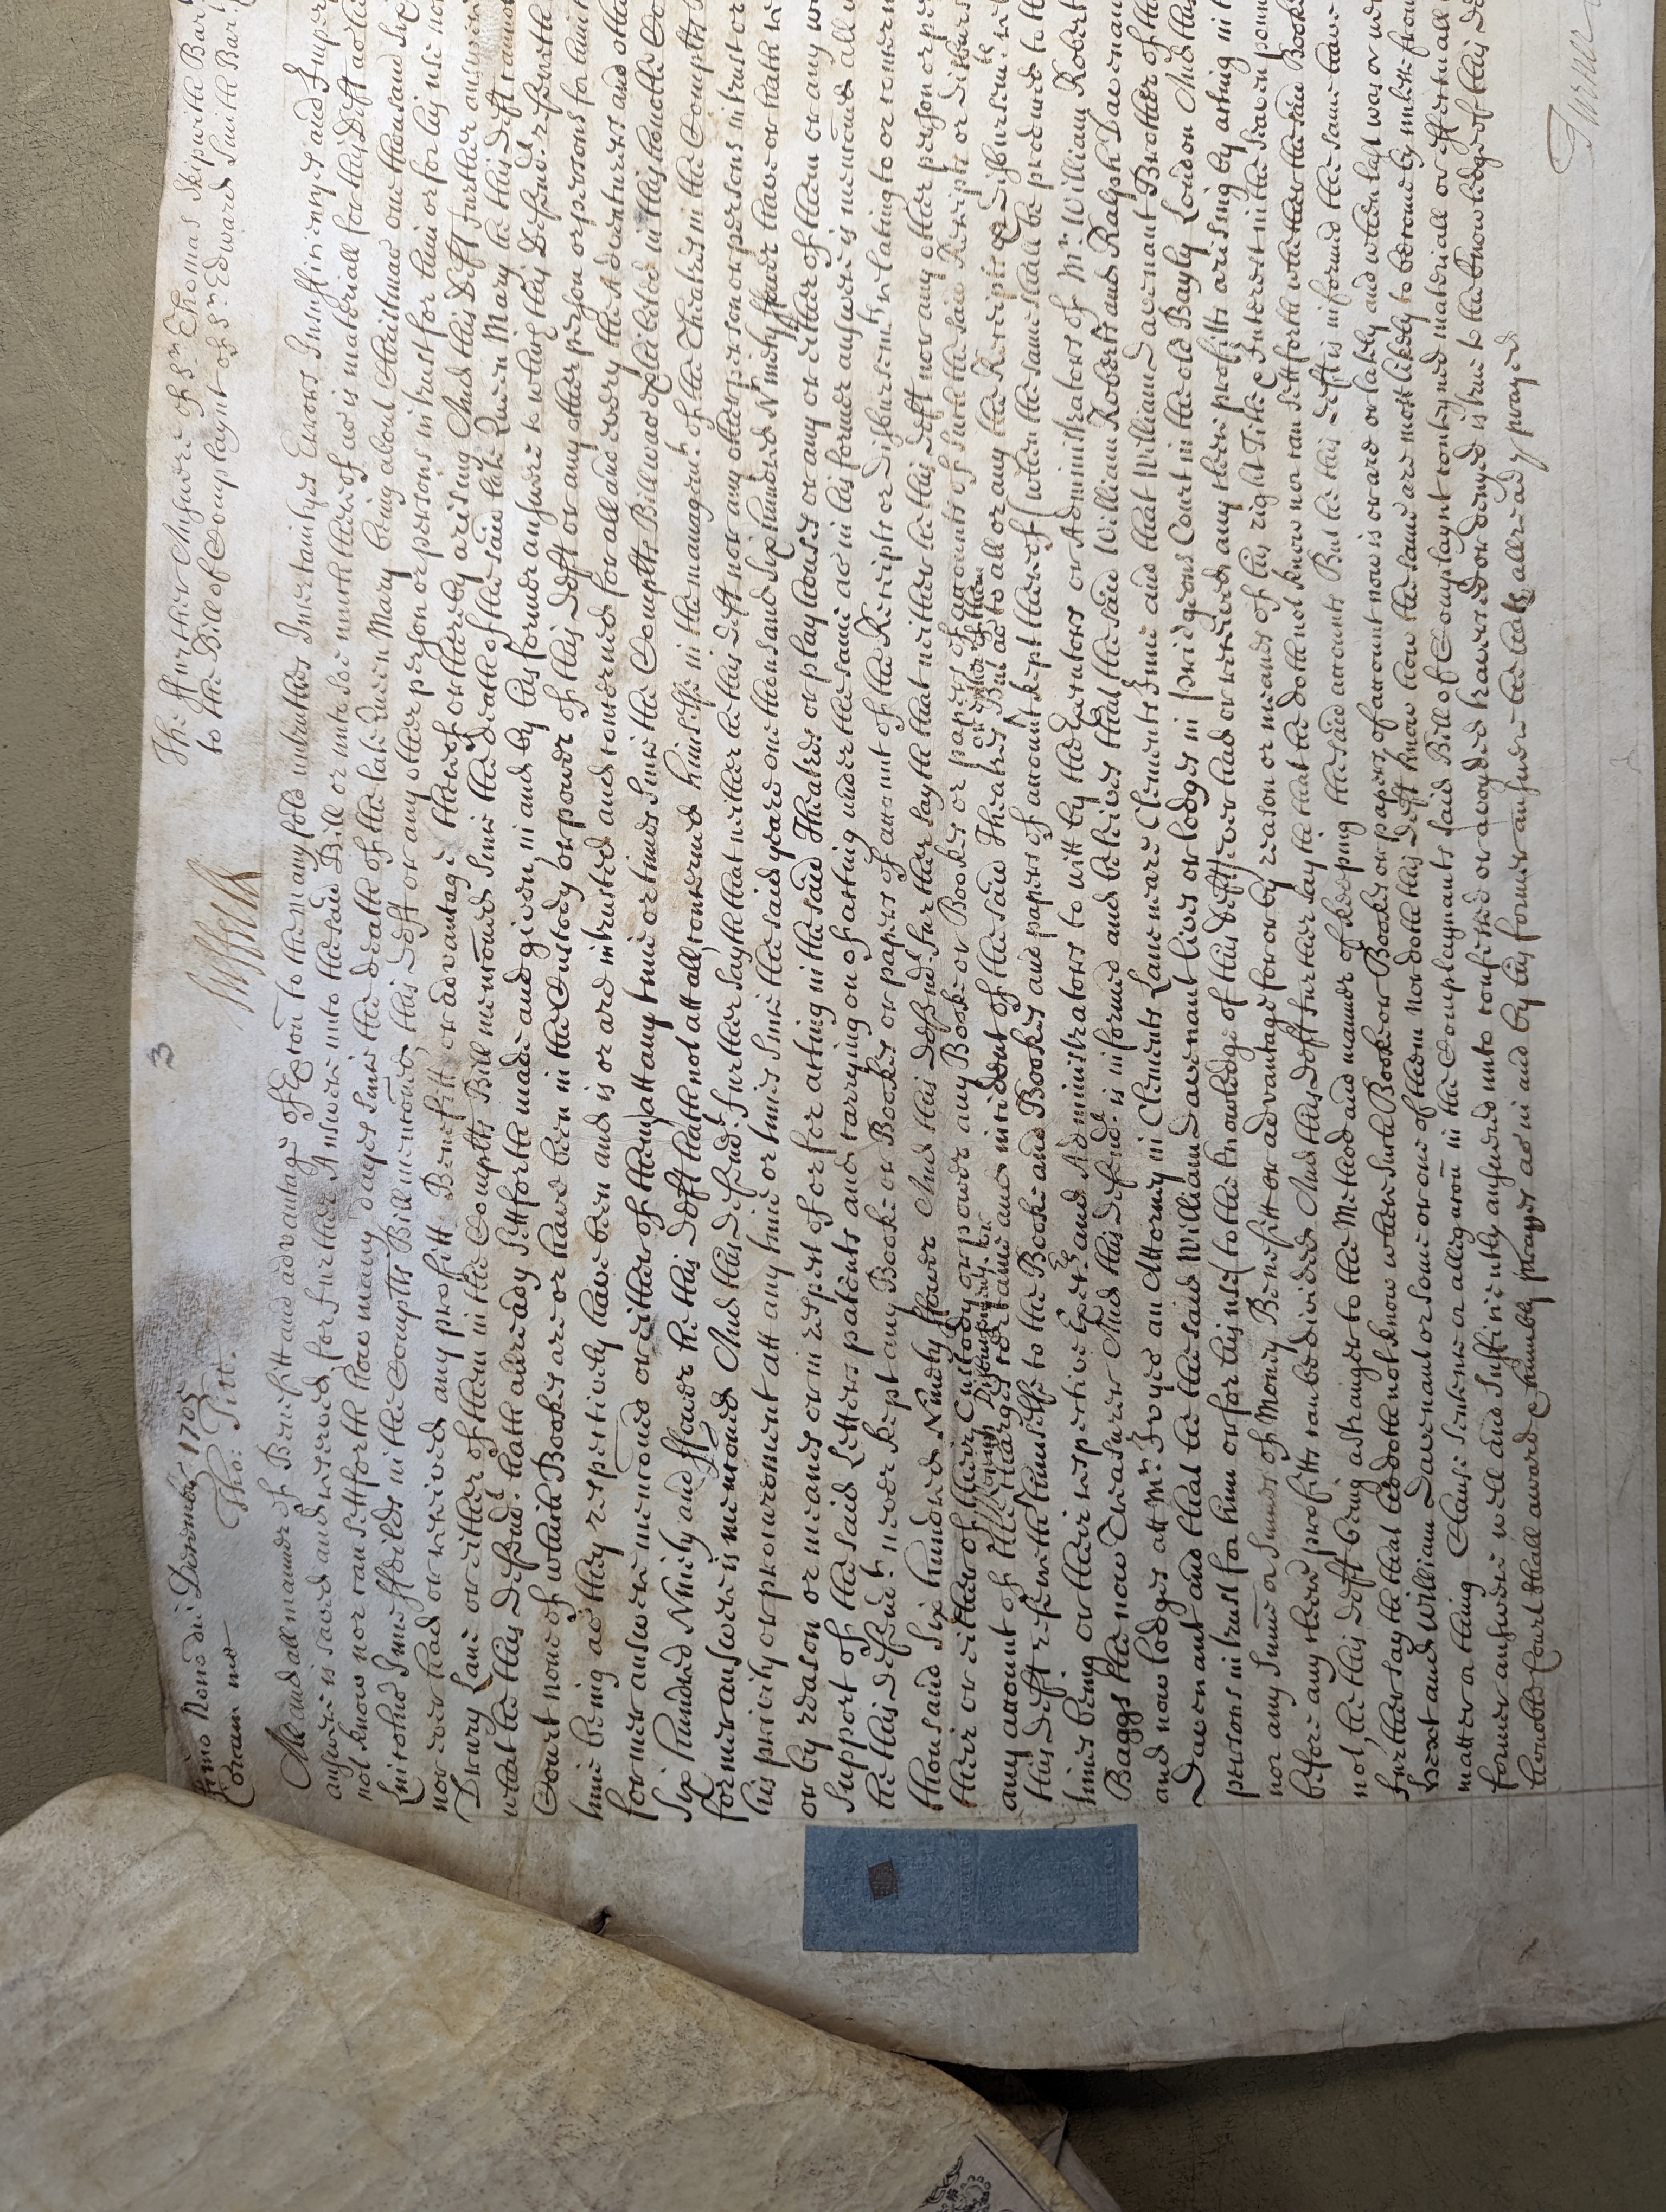 3
Suffolk
Nono die Decembr 1705
Coram me Tho: Pitt.
The ffurther Answere of Sr. Thomas Skipwith Bar
to the Bill of Complaynt of Sr. Edward Smith Bar
All and all manner of Benefitt and advantage of Excepcon to the manyfold untruthes Incertaintyes Errors Insufficiencyes and Imper
answere is saved and reserved for further Answere unto the said Bill or unto soe much thereof as is materiall for this Deft to
not know nor can sett forth how many dayes since the death of the late Queen Mary being about Christmas one thousand Six
since in the Complts Bill menconed, this Deft or any other person or persons in trust for him or for his use
nor ever had or received any profitt Benefitt or advantage thereof or thereby arising And this Deft further answ
Drury Lane or either of them in the Complts Bill menconed since the death of the said late Queen Mary he this Deft cannot
what he this Defend.t hath already sett forth made and given in and by his former answere to which this Defend.t referreth
Court none of which Bookes are or have been in the Custody or power of this Deft or any other person or persons for him
time being as they respectively have been and is or are intrusted and concerned for all and every the Adventurers and othe
former answere menconed or either of them att any time or times since the Complts Bill was exhibited in this honoble Co
Six hundred Ninety and ffower he this Deft hath not att all concerned himselfe in the managemt. of the Theatres in the Complts
former answere is menconed And this Defend.t further sayth that neither he this Deft nor any other person or persons in trust or
his privity or procurement att any time or times since the said yeare one thousand Six hundred Ninety ffower have or hath
or by reason or meanes or in respect of or for acting in the said Theatres or playhouses or any or either of them or any
Support of the said Letters patents and carrying on of acting under the same as in his former answere is menconed all
he this Defend.t never kept any Booke or Bookes or papers of account of the Receipts or Disbursemts relating to or concern
thousand Six hundred Ninety ffower And this Defend.t further sayth that neither he this Deft nor any other person or per
their or either of their Custody or power any Booke or Bookes or papers of accounts of such the said Receipts or Disburs
any account of the Charges the same and incident of the said Theatres But as to all or any the Receipts & Disbursemts
this Deft referreth himselfe to the Booke and Bookes and papers of account kept thereof (when the same shall be produced to th
times being or their respective Exrs. and Administrators to witt by the Executors or Administrators of Mr. William Robert
Baggs the now Treasurer And this Defend.t is informed and beleives that the said William Roberts and Ralph Davenan
and now lodges att Mr. Joyes an Attorney in Clements Lane neare Clements Inne and that William Davenant Brother of th
Davenant and that he the said William Davenant lives or lodges in pridgeons Court in the old Bayly London And this
persons in trust for him or for his use (to the knowledge of this Deft) ever had or received any cleer profitts arising by acting in t
nor any Sume or Sumes of Money Benefitt or advantage for or by reason or meanes of his right Title & Interest in the severall
before any cleer profitts can be divided And this Deft further sayth that he doth not know nor can sett forth whether the said Book
not, he this Deft being a stranger to the Method and manner of keeping the said accounts But he this Deft is informed the same have
further say that he doth not know where such Booke or Bookes or papers of account now is or are or lately and when last was or we
brext and William Davenant or some or one of them Nor doth this Deft know how the same are most likely to become by
matter or thing Clause sentence or allegacon in the Complaynants said Bill of Complaynt conteyned materiall or effectuall
former answere well and sufficiently answered unto confessed or avoyded traversed or denyed is true to the knowledge of this De
honoble Court shall award & humbly prayes as in and by his former answere he hath allready prayed
Turner